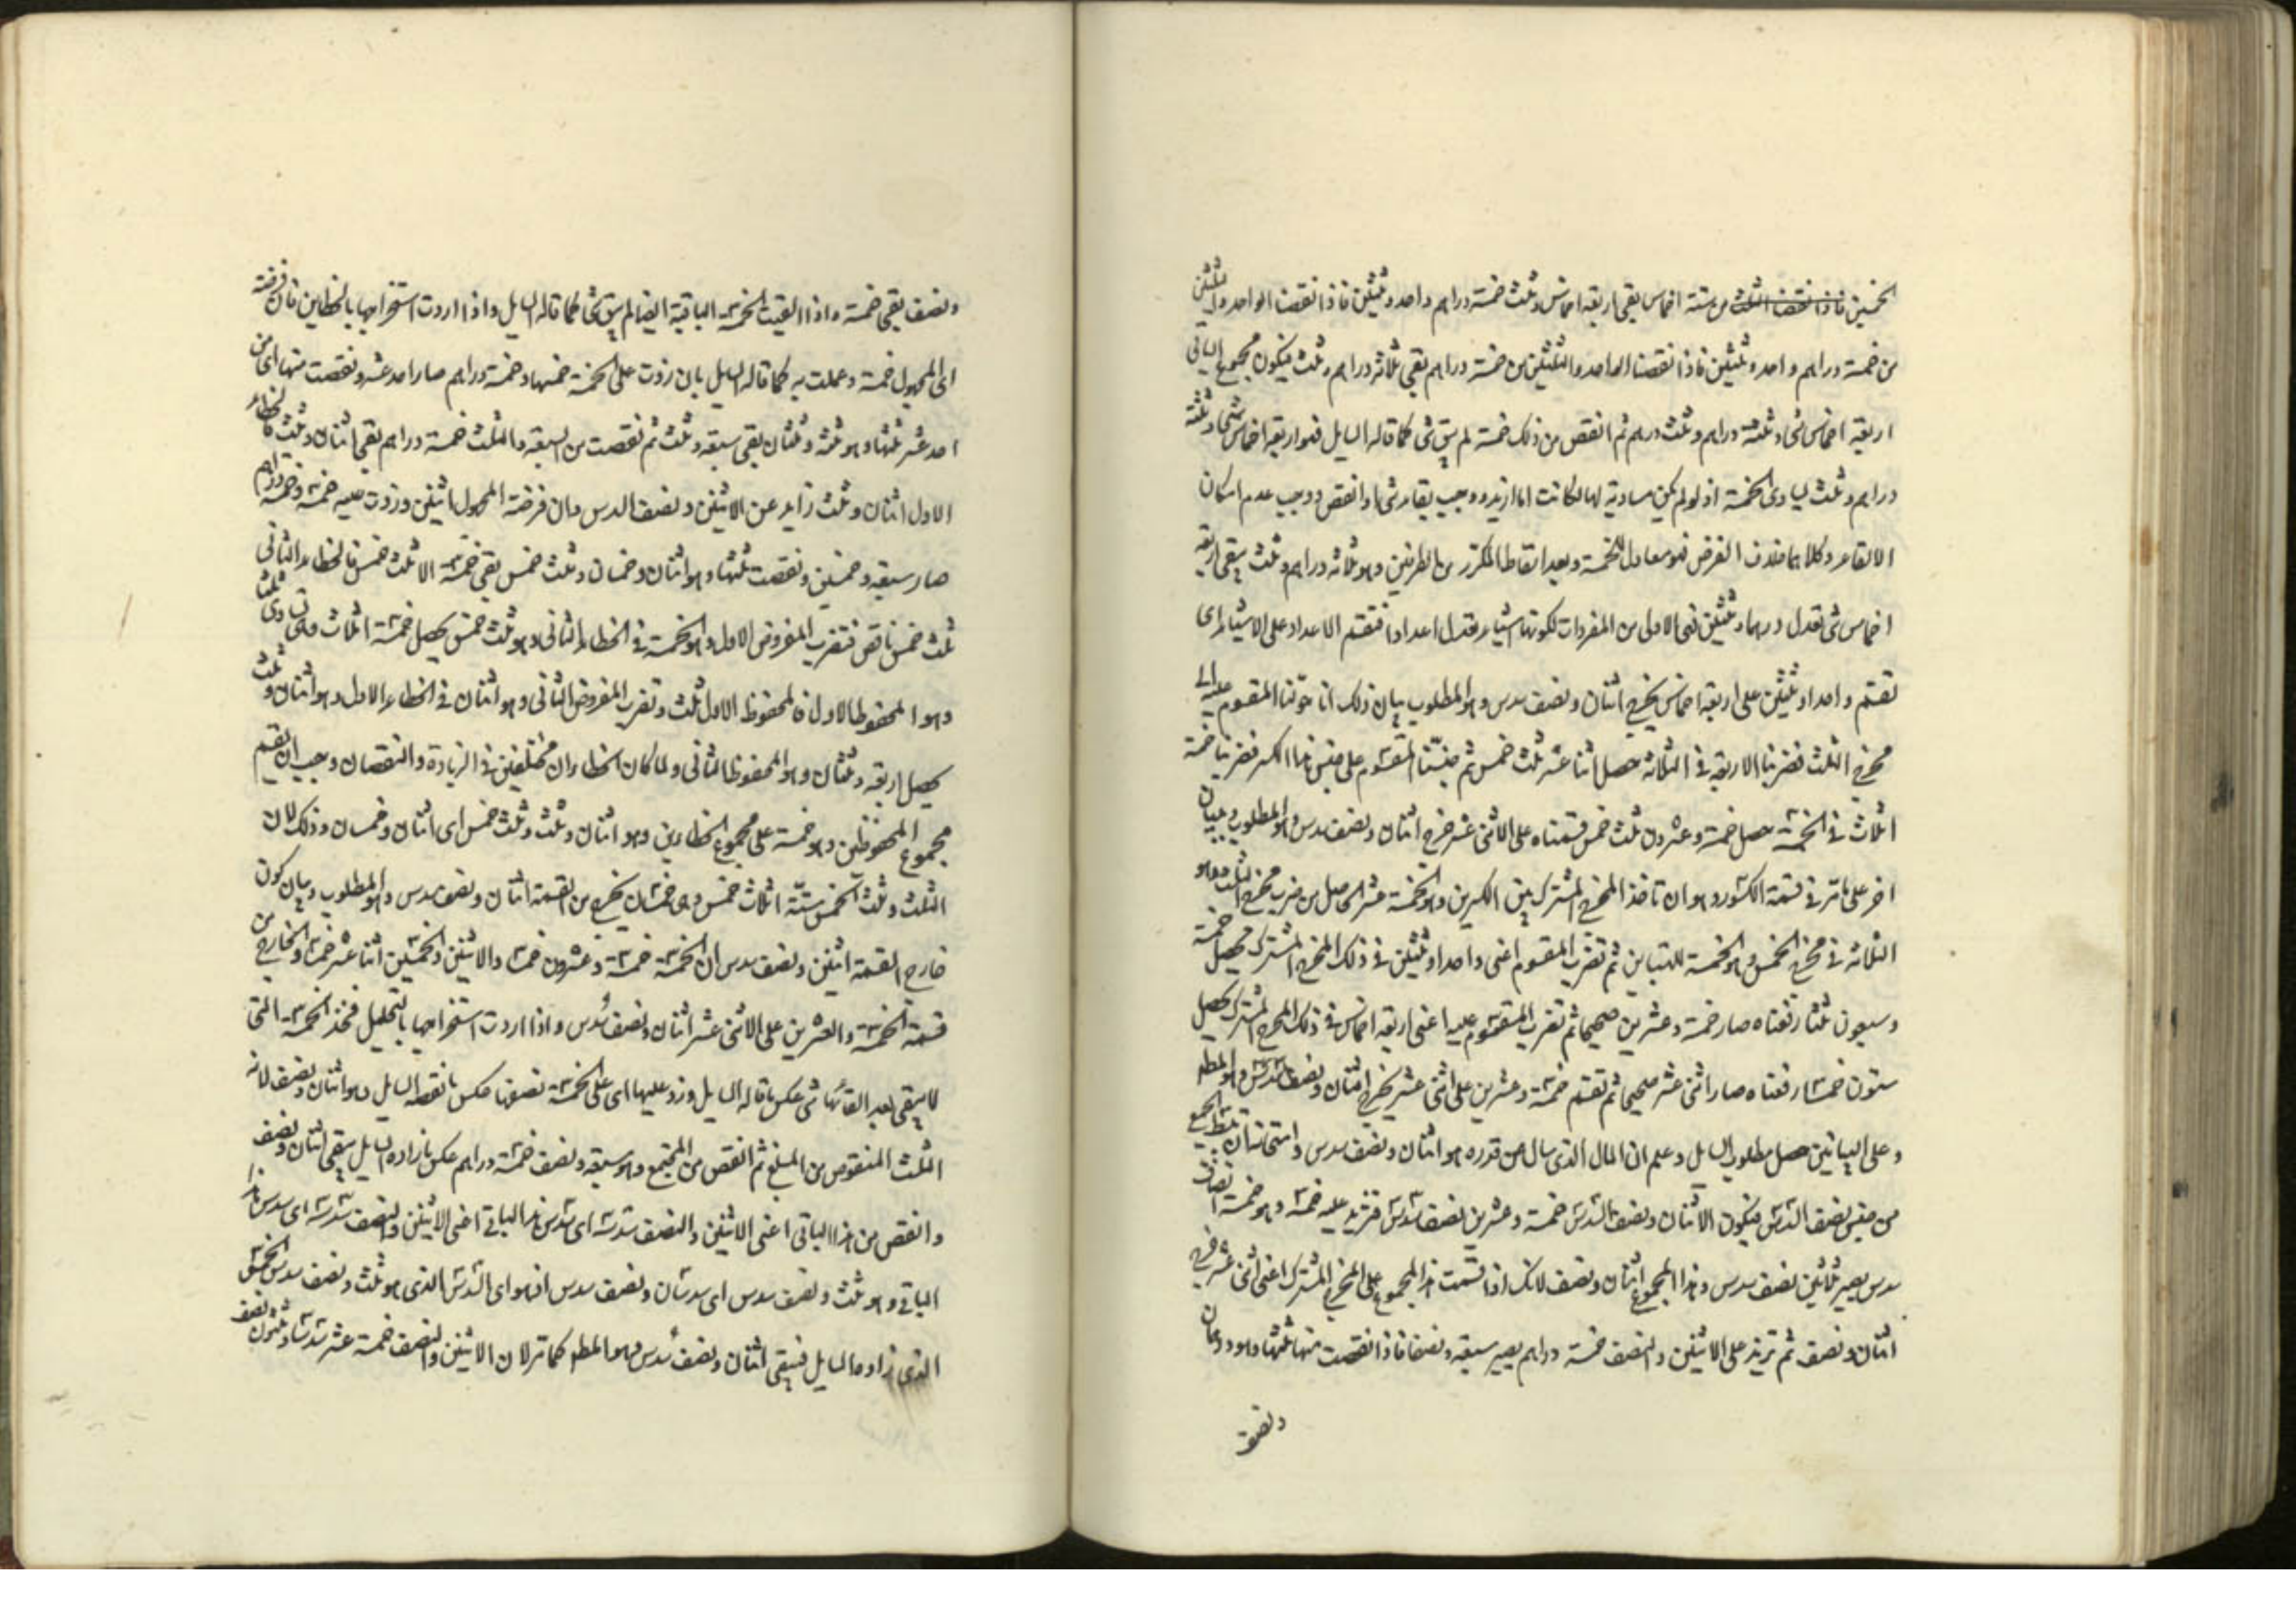 الخمسين فاذا نقصنا الثلث من ستة اخماس بقى اربعة اخماس وثلث خمسة دراهم واحد وثلثين فاذا نقصنا الواحد والثلثين
من خمسة دراهم واحد وثلثين فاذا نقصنا الواحد والثلثين من خمسة دراهم بقى ثلاثة دراهم وثلث فيكون مجموع الباقى
اربعة اخماس شئ وثلثة دراهم وثلث درهم ثم انقص من ذلك خمسة لم يبق شئ كما قاله السايل فهو اربعة اخماس شئ وثلثة
دراهم وثلث يساوى الخمسة اذ لو لم يكن مساوية لها لكانت اما ازيد ووجب بقاء شئ او انقص ووجب عدم امكان
الالقاء وكلاهما خلاف الفرض فهو معادل للخمسة وبعد اسقاط المكرر من الطرفين وهو ثلاثة دراهم وثلث يبقى اربعة
اخماس شئ تعدل درهما وثلثين فهى الاولى من المفردات لكونها اشياء تعدل اعدادا فتقسم الاعداد على الاشياء اى
تقسم واحدا وثلثين على اربعة اخماس يخرج اثنان ونصف سدس وهو المطلوب بيان ذلك انا حولنا المقسوم عليه الى
مخرج الثلث فضربنا الاربعة فى الثلاثة حصل اثنا عشر ثلث خمس ثم جنسنا المقسوم على جنس هذا الكسر فضربنا خمسة
اثلاث فى الخمسة حصل خمسة وعشرون ثلث خمس قسمناه على الاثنى عشر خرج اثنان ونصف سدس وهو المطلوب وببيان
اخر على ما مر فى قسمة الكسور وهو ان تاخذ المخرج المشترك بين الكسرين وهو الخمسة عشر الحاصل من ضرب مخرج الثلث وهو
الثلاثة فى مخرج الخمس وهو الخمسة للتباين ثم تضرب المقسوم اعنى واحدا وثلثين فى ذلك المخرج المشترك فحصل خمسة
وسبعون ثلثا رفعناه صار خمسة وعشرين صحيحا ثم تضرب المقسوم عليه اعنى اربعة اخماس فى ذلك المخرج المشترك يحصل
ستون خمسا رفعناه صار اثنى عشر صحيحا ثم تقسم خمسة وعشرين على اثنى عشر يخرج اثنان ونصف سدس وهو المط
وعلى البيانين حصل مطلوب السايل وعلم ان المال الذى سال عن قدره هو اثنان ونصف سدس وامتحانه ان تبسط الجميع
من جنس نصف السدس فيكون الاثنان ونصف السدس خمسة وعشرين نصف سدس فتزيد عليه خمسه وهو خمسة انصاف
سدس يصير ثلثين نصف سدس وهذا المجموع اثنان ونصف لانك اذا قسمت هذا المجموع على المخرج المشترك اعنى اثنى عشر خرج
اثنان ونصف ثم تزيد على الاثنين والنصف خمسة دراهم يصير سبعة ونصفا فاذا نقصت منها ثلثها وهو درهمان
ونصف
ونصف بقى خمسة واذا القيت الخمسة الباقية ايضا لم يبق شئ كما قاله السايل واذا اردت استخراجها بالخطاين فان فرضته
اى المجهول خمسة وعملت به كما قاله السايل بان زدت على الخمسة خمسها وخمسة دراهم صار احد عشر ونقصت منها اى من
احد عشر ثلثها وهو ثلثة وثلثان بقى سبعة وثلث ثم نقصت من السبعة والثلث خمسة دراهم بقى اثنان وثلث فالخطاء
الاول اثنان وثلث زايد عن الاثنين ونصف السدس وان فرضته المجهول اثنين وزدت عليه خمسه وخمسة دراهم
صار سبعة وخمسين ونقصت ثلثها وهو اثنان وخمسان وثلث خمس بقى خمسة الا ثلث خمس فالخطاء الثانى
ثلث خمس ناقص فتضرب المفروض الاول وهو الخمسة فى الخطاء الثانى وهو ثلث خمس يحصل خمسة اثلاث خمس تساوى ثلثا
وهو المحفوظ الاول فالمحفوظ الاول ثلث وتضرب المفروض الثانى وهو اثنان فى الخطاء الاول وهو اثنان وثلث
يحصل اربعة وثلثان وهو المحفوظ الثانى ولما كان الخطاءان مختلفين فى الزيادة والنقصان وجب ان يقسم
مجموع المحفوظين وهو خمسة على مجموع الخطاءين وهو اثنان وثلث وثلث خمس اى اثنان وخمسان وذلك لان
الثلث وثلث الخمس ستة اثلاث خمس وهى خمسان يخرج من القسمة اثنان ونصف سدس وهو المطلوب وبيان كون
خارج القسمة اثنين ونصف سدس ان الخمسة خمسة وعشرون خمسا والاثنين والخمسين اثنا عشر خمسا والخارج من
قسمة الخمسة والعشرين على الاثنى عشر اثنان ونصف سدس واذا اردت استخراجها بالتحليل فخذ الخمسة التى
لا يبقى بعد القائها شئ عكس ما قاله السايل وزد عليها اى على الخمسة نصفها عكس ما نقصه السايل وهو اثنان ونصف لانه
الثلث المنقوص من المبلغ ثم انقص من المجتمع وهو سبعة ونصف خمسة دراهم عكس ما زاده السايل يبقى اثنان ونصف
وانقص من هذا الباقى اعنى الاثنين والنصف سدسه اى سدس هذا الباقى اعنى الاثنين والنصف سدسه اى سدس هذا
الباقى وهو ثلث ونصف سدس اى سدسان ونصف سدس اذ هو اى السدس الذى هو ثلث ونصف سدس الخمس
الذى زاده السايل فيبقى اثنان ونصف سدس وهو المط كما مر لان الاثنين والنصف خمسة عشر سدسا وثلثون نصف